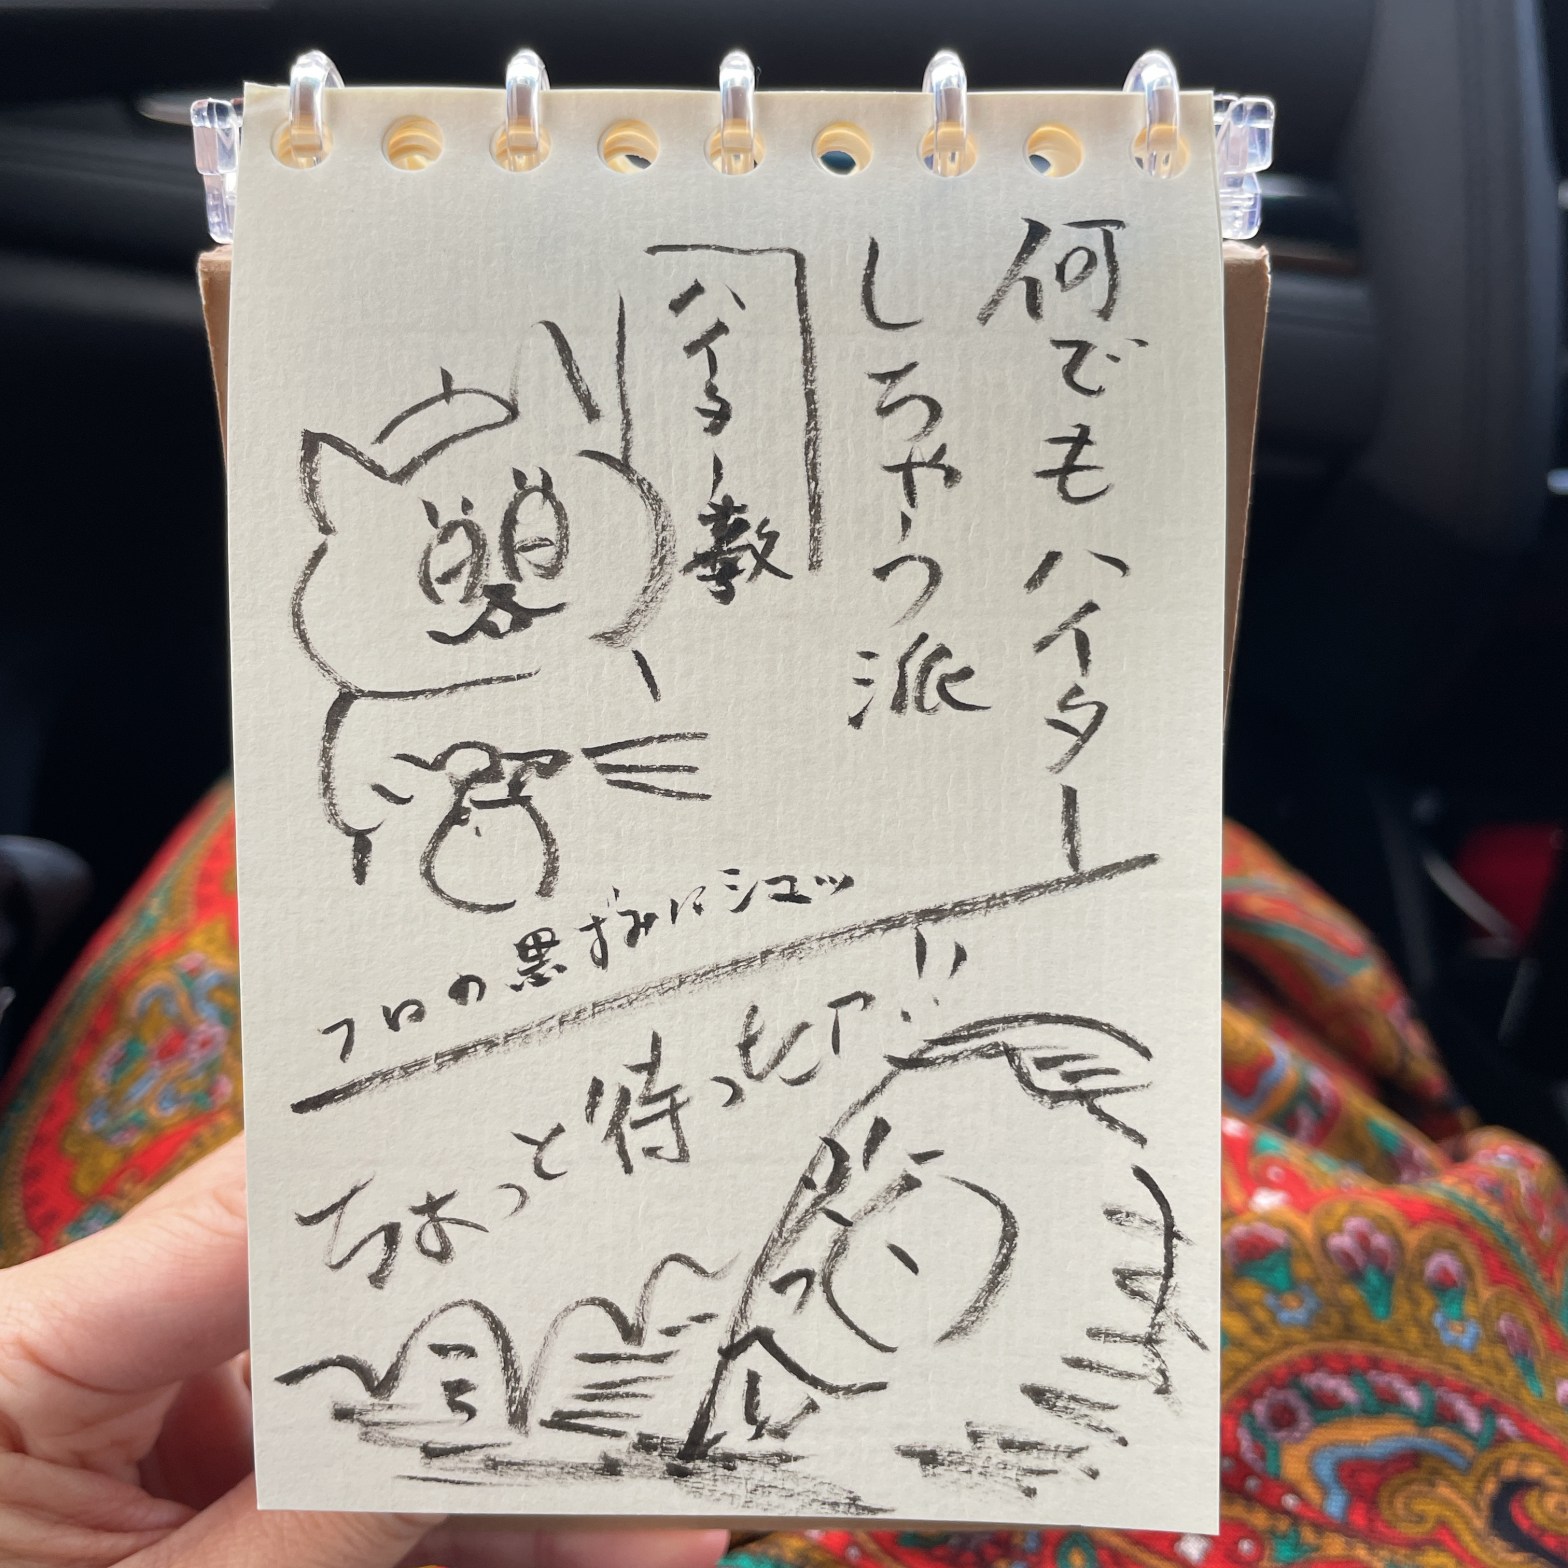 何でもハイター
しちゃう派
ハイター教
フロの黒ずみにシュッ
ちょっと待ったァ!!